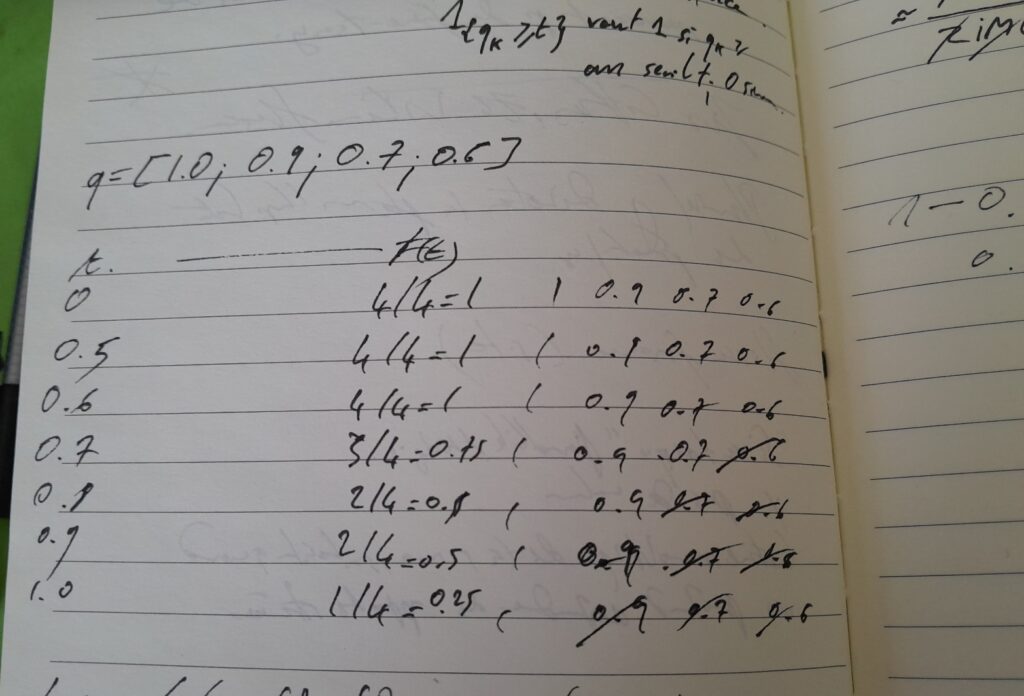 1{qₖ ≥ t} vaut 1 si qₖ ≥
au seuil t. 0 sinon
q=[1.0; 0.9; 0.7; 0.6]
t. f(t)
0 4/4=1 1 0.9 0.7 0.6
0.5 4/4=1 1 0.9 0.7 0.6
0.6 4/4=1 1 0.9 0.7 0.6
0.7 3/4=0.75 1 0.9 0.7 0.6
0.8 2/4=0.5 1 0.9 0.7 0.6
0.9 2/4=0.5 1 0.9 0.7 0.6
1.0 1/4=0.25 1 0.9 0.7 0.6
1-0.
0.